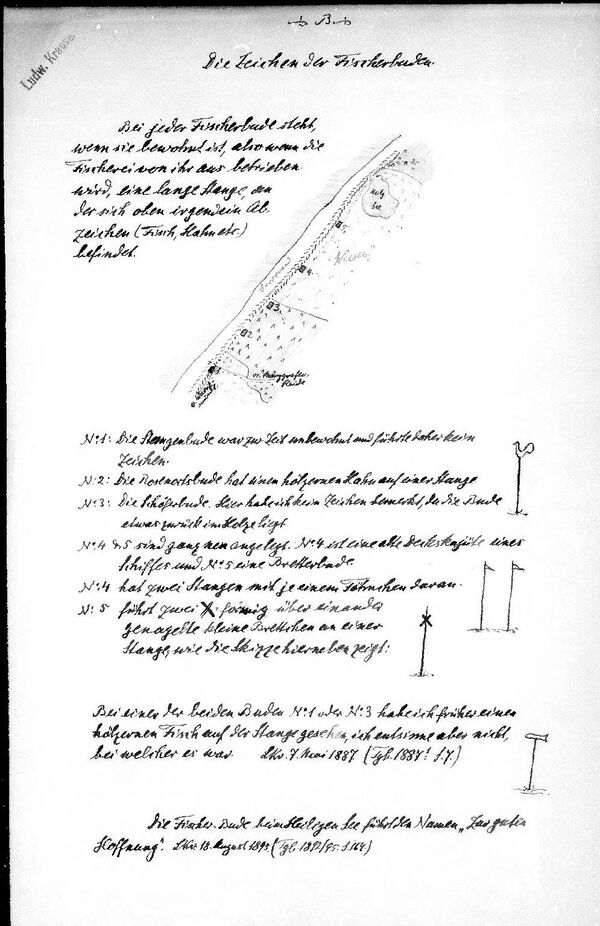 B
Ludw. Krause
Die Zeichen der Fischerbuden.
Bei jeder Fischerbude steht,
wenn sie bewohnt ist, also wenn die
Fischerei von ihr aus betrieben
wird, eine lange Stange, an
der sich oben irgendein Ab-
zeichen (Fisch, Hahn etc.)
befindet.
Heilg
See
5.
Wiesen
4.
Seestrand
3.
2
Heide
No 1: Die Stangenbude war zur Zeit unbewohnt und führte daher kein
Zeichen.
No 2: Die Rosenortsbude hat einen hölzernen Hahn auf einer Stange
No 3: Die Schäferbude. Hier habe ich kein Zeichen bemerkt, da die Bude
etwas zurück im Holze liegt
No 4 & 5 sind ganz neu angelegt. No 4 ist eine alte Deckskajüte eines
Schiffes und No 5 eine Bretterbude.
No 4 hat zwei Stangen mit je einem Fähnchen daran.
No 5 führt zwei X förmig über einander
genagelte kleine Brettchen an einer
Stange, wie die Skizze hierneben zeigt:
Bei einer der beiden Buden No 1 oder No 3 habe ich früher einen
hölzernen Fisch auf der Stange gesehen, ich entsinne aber nicht,
bei welcher es war. LKr. 7. Mai 1887 (Tgb. 1887! S. 7.)
Die Fischer-Bude beim Heiligen See führt den Namen „Zur guten
Hoffnung". LKr. 18. August 1895 (Tgb. S. 164)